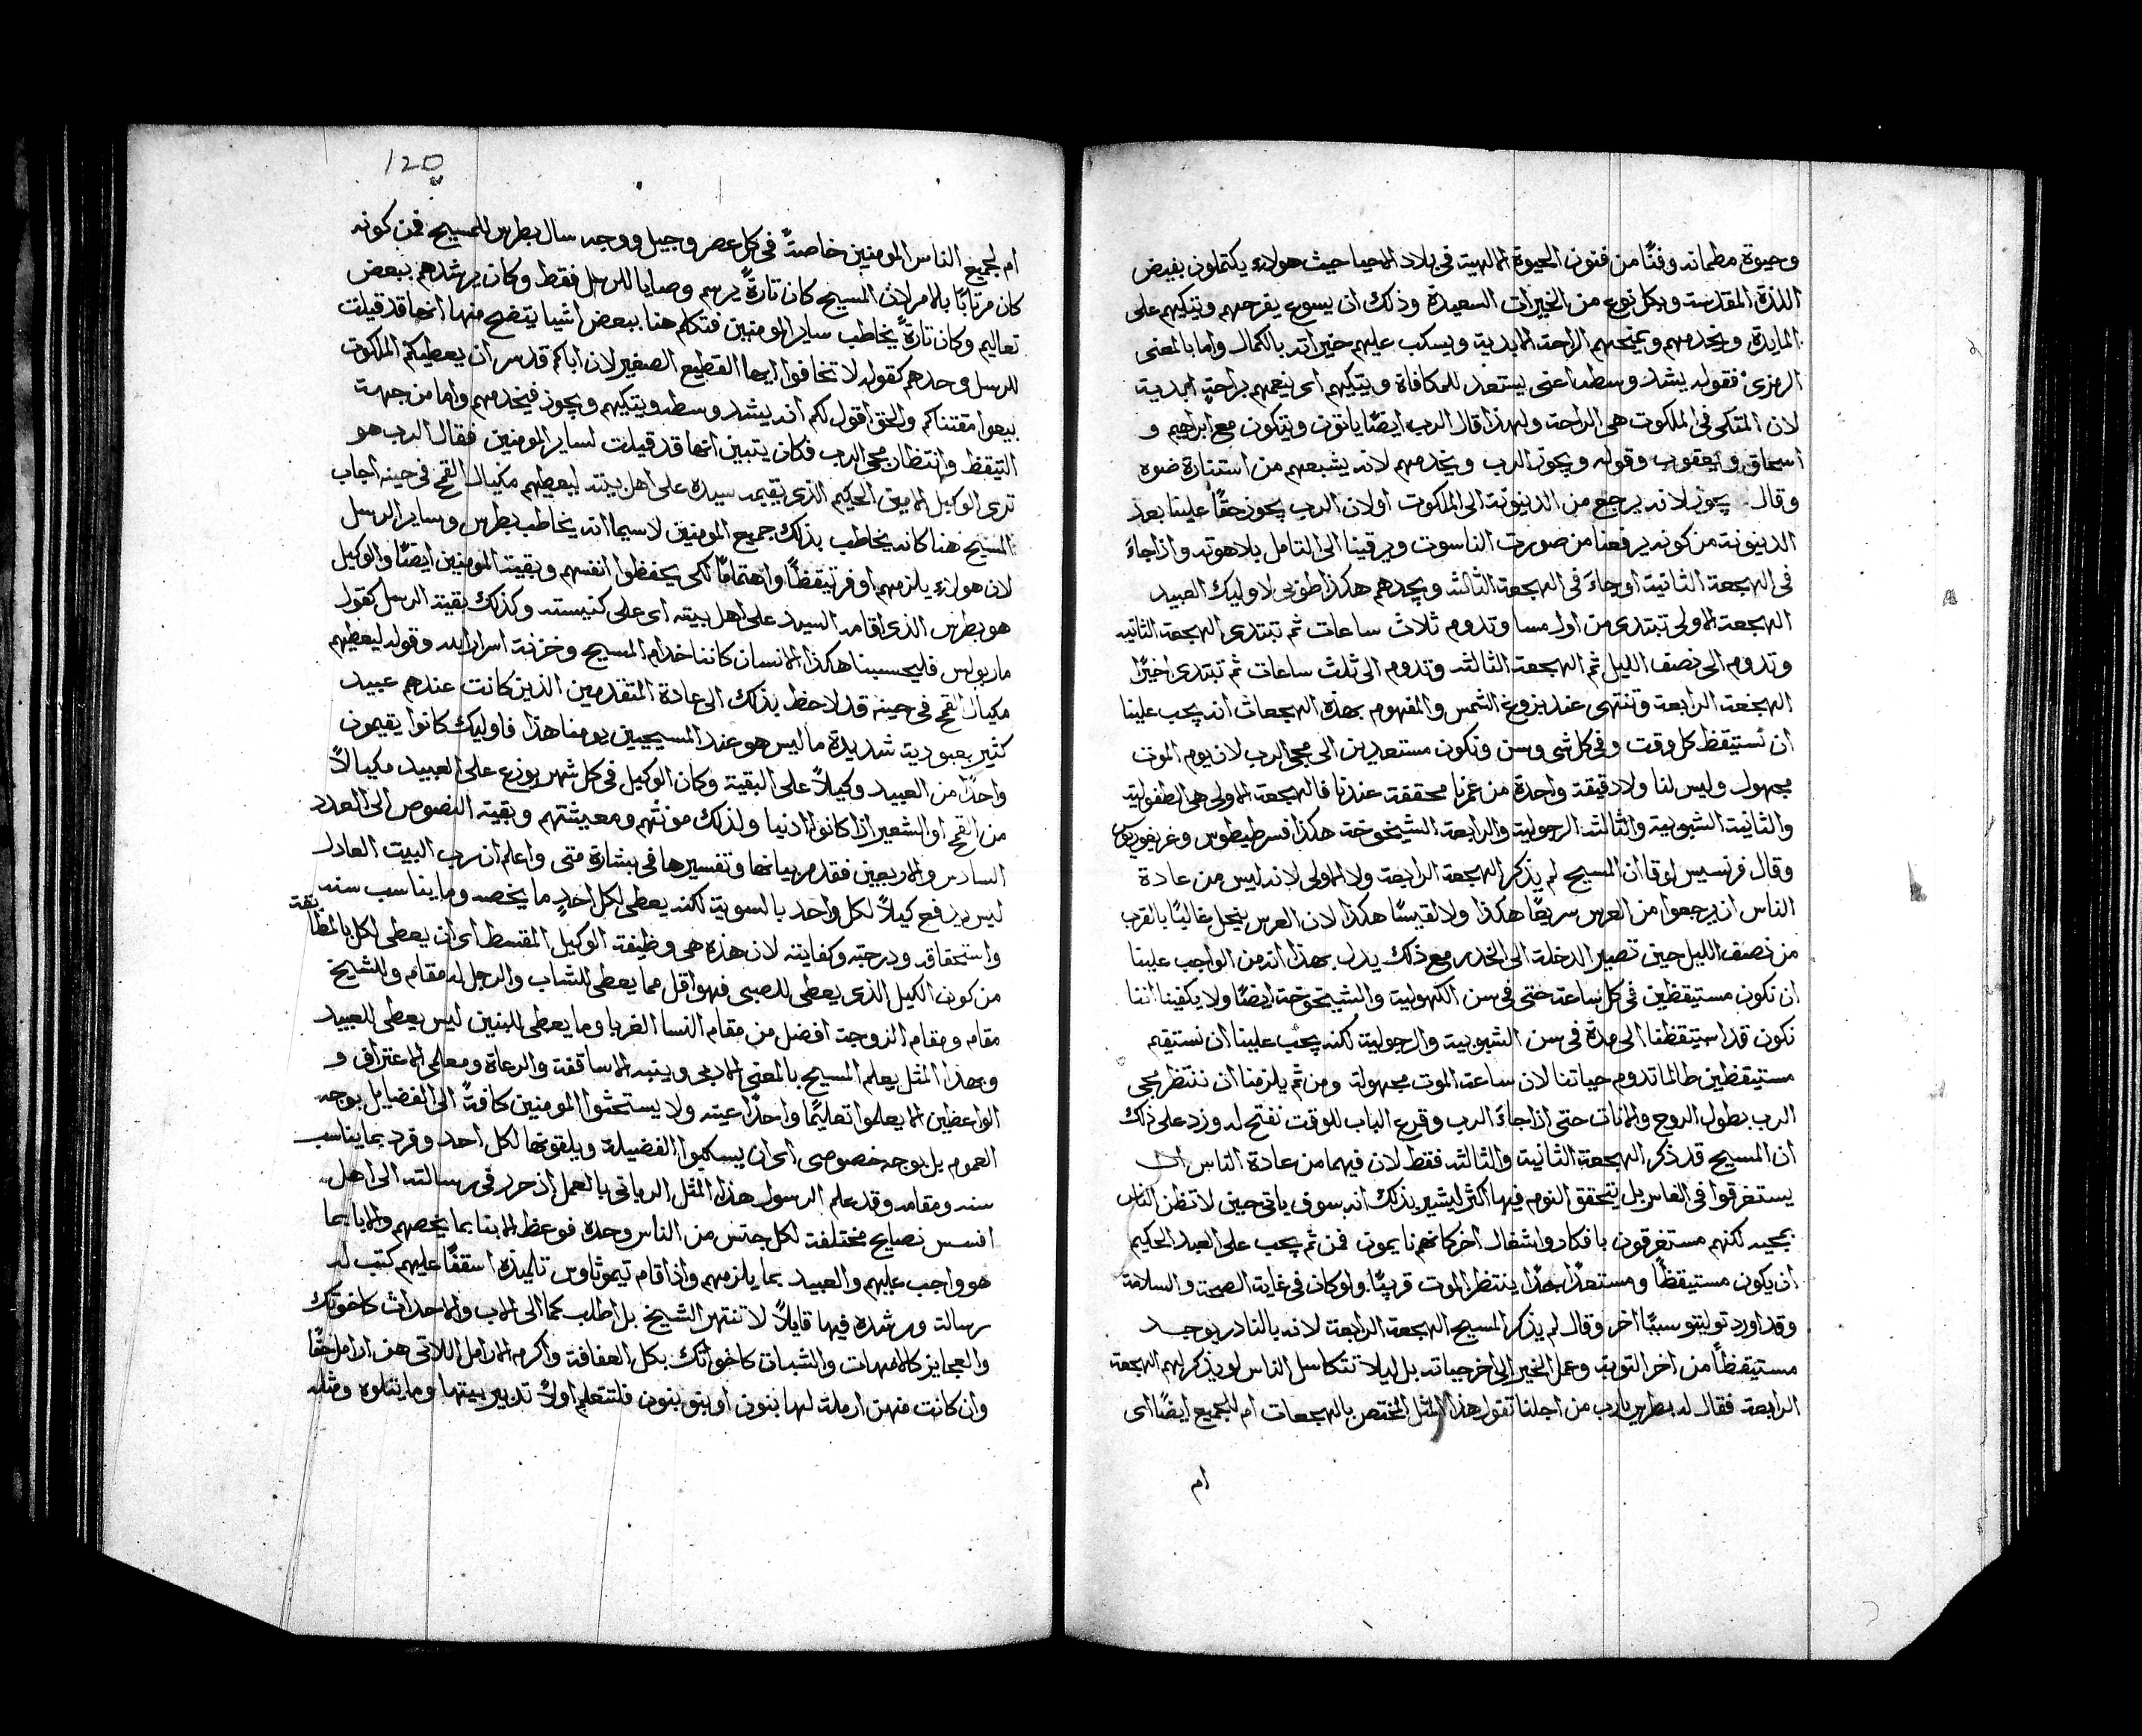 وحيوة مطمانه وفنًا من فنون الحيوة الالهية في بلاد الاحيا حيث هولاء يكتملون بفيض
اللذة المقدسة وبكل نوع من الخيرات السعيدة وذلك ان يسوع يفرحهم ويتكيهم على
المايدة ويخدمهم ويمنحهم الراحة الابدية ويسكب عليهم خيراته بالكمال واما بالمعنى
الرمزي فقوله يشد وسطه اعني يستعد للمكافاة ويتكيهم اي ينعمهم براحةٍ ابدية
لان المتكى في الملكوت هي الراحة ولهذا قال الرب ايضًا ياتون ويتكون مع ابراهيم و
اسحاق ويعقوب وقوله ويجوز الرب ويخدمهم لانه يشبعهم من استنارة ضوه
وقال يجوز لانه يرجع من الدينونة الى الملكوت اولان الرب يجوز حقًا علينا بعد
الدينونة من كونه يرفعنا من صورت الناسوت ويرقينا الى التامل بلاهوته واذا جاءَ
في الهجعة الثانية او جاءَ في الهجعة الثالثة ويجدهم هكذا طوبى لاوليك العبيد
الهجعة الاولى تبتدي من اول مسا وتدوم ثلاث ساعات ثم تبتدي الهجعة الثانيه
وتدوم الى نصف الليل ثم الهجعة الثالثة وتدوم الى ثلث ساعات ثم تبتدي اخيرًا
الهجعة الرابعة وتنتهى عند بزوغ الشمس والمفهوم بهذه الهجعات انه يجب علينا
ان نستيقظ كل وقت وفي كل شي وسن ونكون مستعدين الى مجي الرب لان يوم الموت
مجهول وليس لنا ولا دقيقة واحدة من عمرنا محققة عندنا فالهجعة الاولى هي الطفولية
والثانية الشبوبية والثالثة الرجولية والرابعة الشيخوخة هكذا فسر طيطوس وغريغوريوس
وقال فرنسيس لوقا ان المسيح لم يذكر الهجعة الرابعة ولا الاولى لانه ليس من عادة
الناس ان يرجعوا من العرس سريعًا هكذا ولا لقيسًا هكذا لان العرس ينحل غالبًا بالقرب
من نصف الليل حين تصير الدخلة الى الخدر مع ذلك يدل بهذا انه من الواجب علينا
ان نكون مستيقظين في كل ساعة حتى في سن الكهولية والشيخوخة ايضًا ولا يكفينا اننا
نكون قد استيقظنا الى مدة في سن الشبوبية والرجولية لكنه يجب علينا ان نستقيم
مستيقظين طالما تدوم حياتنا لان ساعة الموت مجهولة ومن ثم يلزمنا ان ننتظر مجي
الرب بطول الروح والانات حتى اذا جاءَ الرب وقرع الباب للوقت نفتح له وزد على ذلك
ان المسيح قد ذكر الهجعة الثانية والثالثة فقط لان فيهما من عادة الناس ان
يستغرقوا في النعاس بل يتحقق النوم فيها اكثر ليشير بذلك انه سوف ياتي حين لا تظن الناس
بمجيه لكنهم مستغرقون بافكار واشغال اخر كانهم نايمون فمن ثم يجب على العبد الحكيم
ان يكون مستيقظًا ومستعدًا جدًا ينتظر الموت قريبًا ولو كان في غاية الصحة والسلامة
وقد اورد توليتو سببًا اخر وقال لم يذكر المسيح الهجعة الرابعة لانه بالنادر يوجد
مستيقظًا من اخر التوبة وعمل الخير الى اخر حياته بل ليلا تتكاسل الناس لو يذكر لهم الهجعة
الرابعة فقال له بطرس يارب من اجلنا تقول هذا المثل المختص بالهجعات ام للجميع ايضًا اي
ام
120
ام لجميع الناس المومنين خاصةً في كل عصر وجيل ووجه سال بطرس للمسيح فمن كونه
كان مرتابًا بالامر لان المسيح كان تارةً يرسم وصايا للرسل فقط وكان يرشدهم ببعض
تعاليم وكان تارةً يخاطب ساير المومنين فتكلم هنا ببعض اشيا يتضح منها انها قد قيلت
للرسل وحدهم كقوله لا تخافوا ايها القطيع الصغير لان اباكم قد سر ان يعطيكم الملكوت
بيعوا مقتناكم والحق اقول لكم انه يشد وسطه ويتكيهم ويجوز فيخدمهم واما من جهة
التيقظ وانتظار مجي الرب فكان يتبين انها قد قيلت لساير المومنين فقال الرب هو
ترى الوكيل الامين الحكيم الذي يقيمه سيده على اهل بيته ليعطيهم مكيال القمح في حينه اجاب
المسيح هنا كانه يخاطب بذلك جميع المومنين لاسيما انه يخاطب بطرس وساير الرسل
لان هولاء يلزمهم اوفر تيقظًا واهتمامًا لكي يحفظوا انفسهم وبقية المومنين ايضًا والوكيل
هو بطرس الذي اقامه السيد على اهل بيته اي على كنيسته وكذلك بقية الرسل كقول
ماربولس فليحسبنا هكذا الانسان كاننا خدام المسيح وخزنة اسرار الله وقوله ليعطيهم
مكيال القمح في حينه قد لاحظ بذلك الى عادة المتقدمين الذين كانت عندهم عبيد
كثير بعبودية شديدة ما ليس هو عند المسيحيين يومنا هذا فاوليك كانوا يقيمون
واحدًا من العبيد وكيلاً على البقية وكان الوكيل في كل شهر يوزع على العبيد مكيالاً
من القمح او الشعير اذا كانوا ادنيا ولذلك مونتهم ومعيشتهم وبقية النصوص الى العدد
السادس والاربعين فقد مر بيانها وتفسيرها في بشارة متى واعلم ان رب البيت العادل
ليس يدفع كيلاً لكل واحد بالسوية لكنه يعطي لكل احدٍ ما يخصه وما يناسب سنه
واستحقاقه ودرجته وكفايته لان هذه هي وظيفة الوكيل المقسط اي ان يعطي لكل بالمطابقة
من كون الكيل الذي يعطى للصبي فهو اقل مما يعطى للشاب والرجل له مقام وللشيخ
مقام ومقام الزوجة افضل من مقام النسا الغربا وما يعطى للبنين ليس يعطى للعبيد
وبهذا المثل يعلم المسيح بالمعنى الادبي وينبه الاساقفة والرعاة ومعلمي الاعتراف و
الواعظين الا يعلموا تعليمًا واحدًا عينه ولا يستحثوا المومنين كافةً الى الفضايل بوجه
العموم بل بوجه خصوصي اي ان يسكبوا الفضيلة ويلقونها لكل احد وفرد بما يناسب
سنه ومقامه وقد علم الرسول هذا المثل الرباني بالعمل اذ حرر في رسالته الى اهل
افسس نصايح مختلفة لكل جنس من الناس وحده فوعظ الابنا بما يخصهم والابا بما
هو واجب عليهم والعبيد بما يلزمهم واذ اقام تيموثاوس تلميذه اسقفًا عليهم كتب له
رسالة ورشده فيها قايلاً لا تنتهر الشيخ بل اطلب كما الى الاب والاحداث كاخوتك
والعجايز كالامهات والشبات كاخواتك بكل العفافة واكرم الارامل اللاتي هن ارامل حقًا
وان كانت منهن ارملة لها بنون او بنو بنون فلتتعلم اولاً تدبير بيتها وما يتلوه ومثله